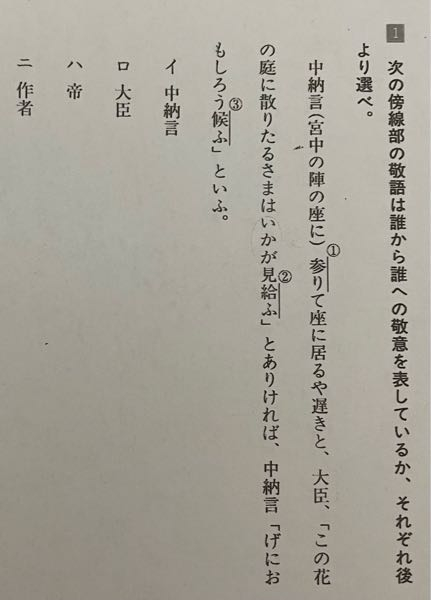 1 次の傍線部の敬語は誰から誰への敬意を表しているか、それぞれ後
より選べ。
中納言(宮中の陣の座に)①参りて座に居るや遅きと、大臣、「この花
の庭に散りたるさまはいかが見②給ふ」とありければ、中納言「げにお
もしろう③候ふ」といふ。
イ 中納言
ロ 大臣
ハ 帝
ニ 作者